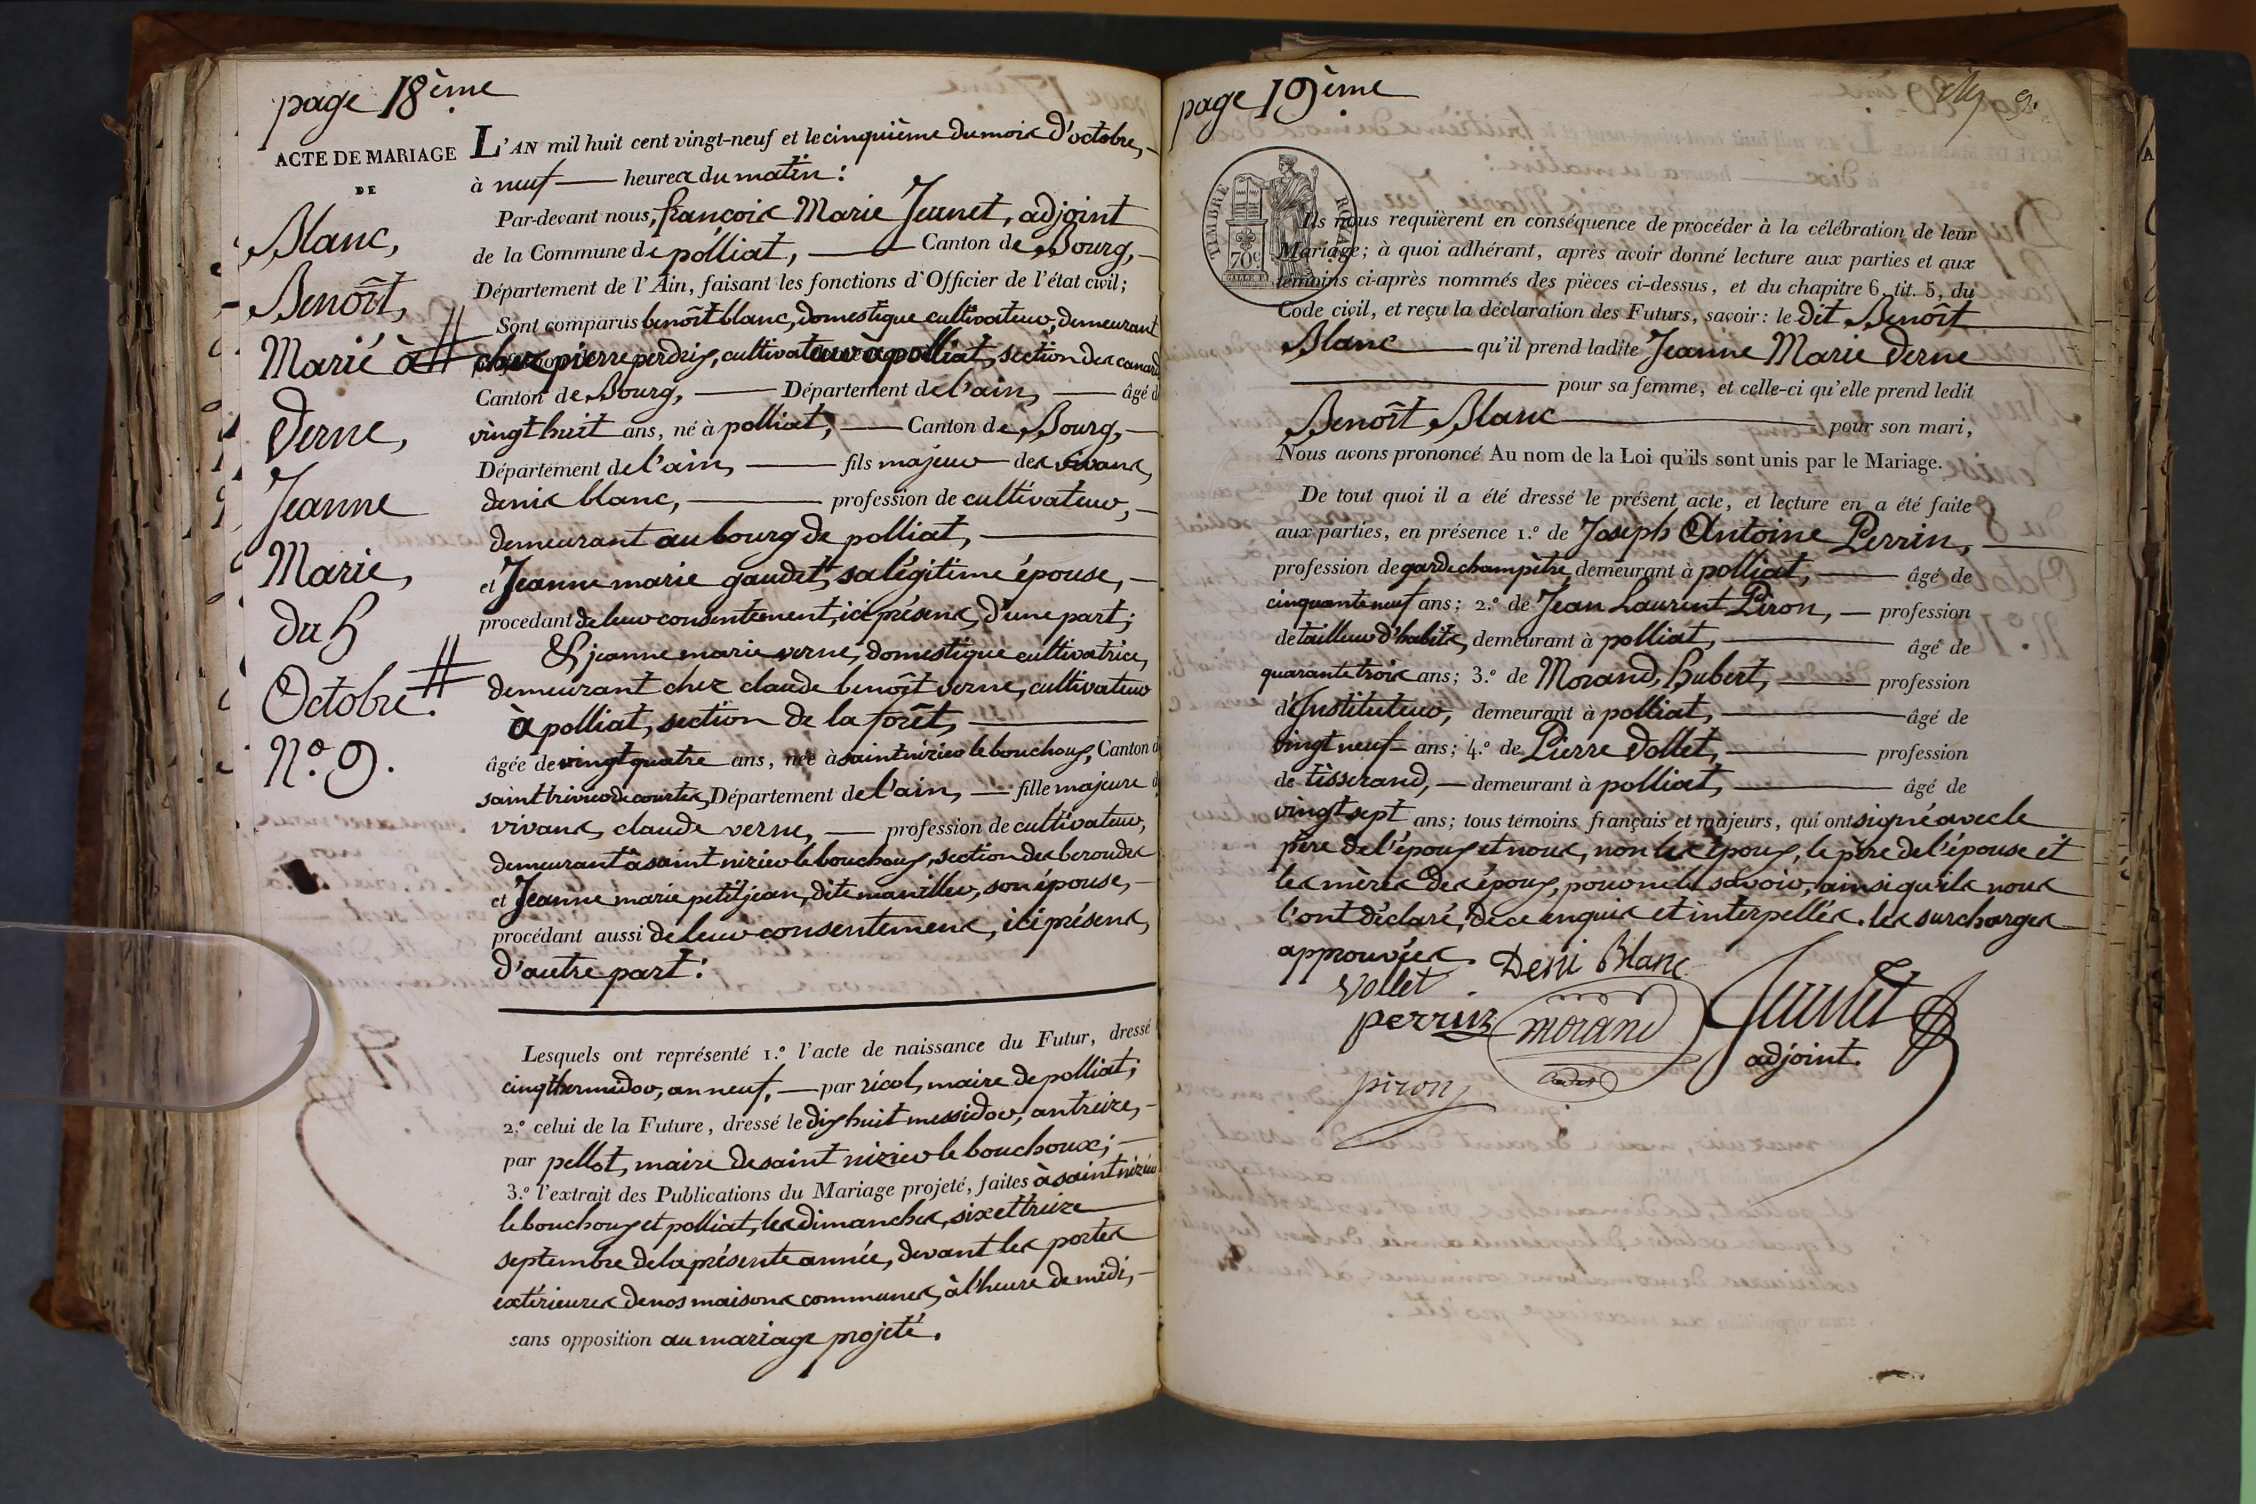 page 18ème
ACTE DE MARIAGE
DE
Blanc,
Benoît,
Marié à
Verne,
Jeanne
Marie,
du 5
Octobre.
N.° 9.
L'AN mil huit cent vingt-neuf et le cinquième du mois d'octobre,
à neuf heures du matin :
Par-devant nous, françois Marie Jeunet, adjoint
de la Commune de polliat, Canton de Bourg,
Département de l'Ain, faisant les fonctions d'Officier de l'état civil;
Sont comparus benoît blanc, domestique cultivateur, demeurant
chez pierre perdrix, cultivateur à polliat, section des canards
Canton de Bourg, Département de l'ain, âgé de
vingt huit ans, né à polliat, Canton de Bourg,
Département de l'ain, fils majeur des vivans,
denis blanc, profession de cultivateur,
demeurant au bourg de polliat,
et Jeanne marie gaudet, sa légitime épouse,
procédant de leur consentement, ici présens, d'une part;
Et jeanne marie verne, domestique cultivatrice,
demeurant chez claude benoît verne, cultivateur
à polliat, section de la forêt,
âgée de vingt quatre ans, née à saint nizier le bouchoux, Canton de
saint trivier de courtes, Département de l'ain, fille majeure de
vivans, claude verne, profession de cultivateur,
demeurant à saint nizier le bouchoux, section des beroudes
et Jeanne marie petitjean, dite maniller, son épouse,
procédant aussi de leur consentemens, ici présens,
d'autre part :
Lesquels ont représenté 1.° l'acte de naissance du Futur, dressé
cinq thermidor, an neuf, par ricol, maire de polliat;
2.° celui de la Future, dressé le dix huit messidor, an treize,
par pellot, maire de saint nizier le bouchoux;
3.° l'extrait des Publications du Mariage projeté, faites à saint nizier
le bouchoux et polliat, les dimanches, six et treize
septembre de la présente année, devant les portes
extérieures de nos maisons communes, à l'heure de midi,
sans opposition au mariage projeté.
page 19ème
TIMBRE ROYAL
70 c
Ils nous requièrent en conséquence de procéder à la célébration de leur
Mariage; à quoi adhérant, après avoir donné lecture aux parties et aux
témoins ci-après nommés des pièces ci-dessus, et du chapitre 6, tit. 5, du
Code civil, et reçu la déclaration des Futurs, savoir: le dit Benoît
Blanc qu'il prend ladite Jeanne Marie Verne
pour sa femme, et celle-ci qu'elle prend ledit
Benoît Blanc pour son mari,
Nous avons prononcé Au nom de la Loi qu'ils sont unis par le Mariage.
De tout quoi il a été dressé le présent acte, et lecture en a été faite
aux parties, en présence 1.° de Joseph Antoine Perrin,
profession de garde champêtre, demeurant à polliat, âgé de
cinquante neuf ans; 2.° de Jean Laurent Piron, profession
de tailleur d'habits, demeurant à polliat, âgé de
quarante trois ans; 3.° de Morand, hubert, profession
d'Instituteur, demeurant à polliat, âgé de
vingt neuf ans; 4.° de Pierre Vollet, profession
de tisserand, demeurant à polliat, âgé de
vingt sept ans; tous témoins français et majeurs, qui ont signé avec le
père de l'époux et nous, non les époux, le père de l'épouse et
les mères des époux, pour ne le savoir, ainsi qu'ils nous
l'ont déclaré, de ce enquis et interpellés. les surcharges
approuvées.
Vollet Deni Blanc
perrin morand Jeunet
adjoint.
piron